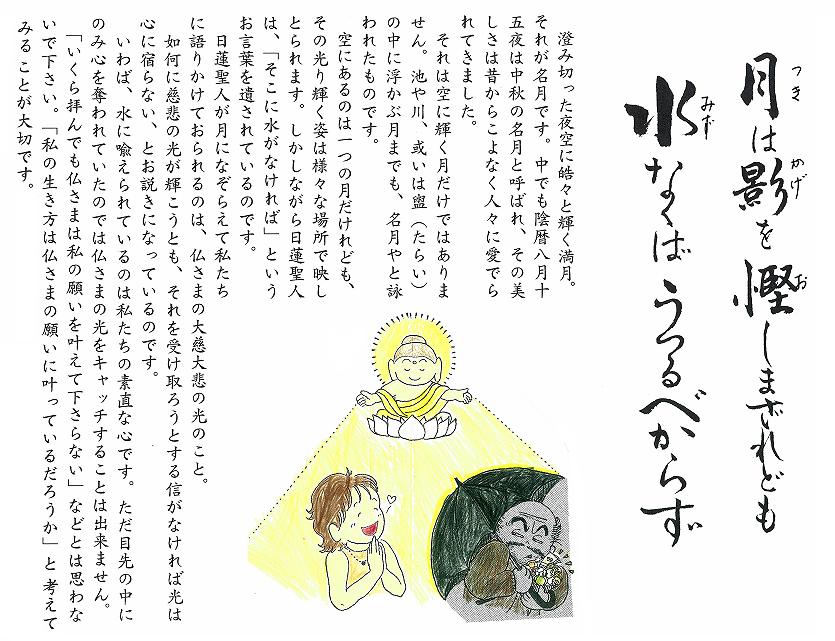 月は影を慳しまざれども
つき
かげ
お
水なくばうつるべからず
みず
澄み切った夜空に皓々と輝く満月。
それが名月です。中でも陰暦八月十
五夜は中秋の名月と呼ばれ、その美
しさは昔からこよなく人々に愛でら
れてきました。
それは空に輝く月だけではありま
せん。池や川、或いは盥（たらい）
の中に浮かぶ月までも、名月やと詠
われたものです。
空にあるのは一つの月だけれども、
その光り輝く姿は様々な場所で映し
とられます。しかしながら日蓮聖人
は、「そこに水がなければ」という
お言葉を遺されているのです。
日蓮聖人が月になぞらえて私たち
に語りかけておられるのは、仏さまの大慈大悲の光のこと。
如何に慈悲の光が輝こうとも、それを受け取ろうとする信がなければ光は
心に宿らない、とお説きになっているのです。
いわば、水に喩えられているのは私たちの素直な心です。ただ目先の中に
のみ心を奪われていたのでは仏さまの光をキャッチすることは出来ません。
「いくら拝んでも仏さまは私の願いを叶えて下さらない」などとは思わな
いで下さい。「私の生き方は仏さまの願いに叶っているだろうか」と考えて
みることが大切です。